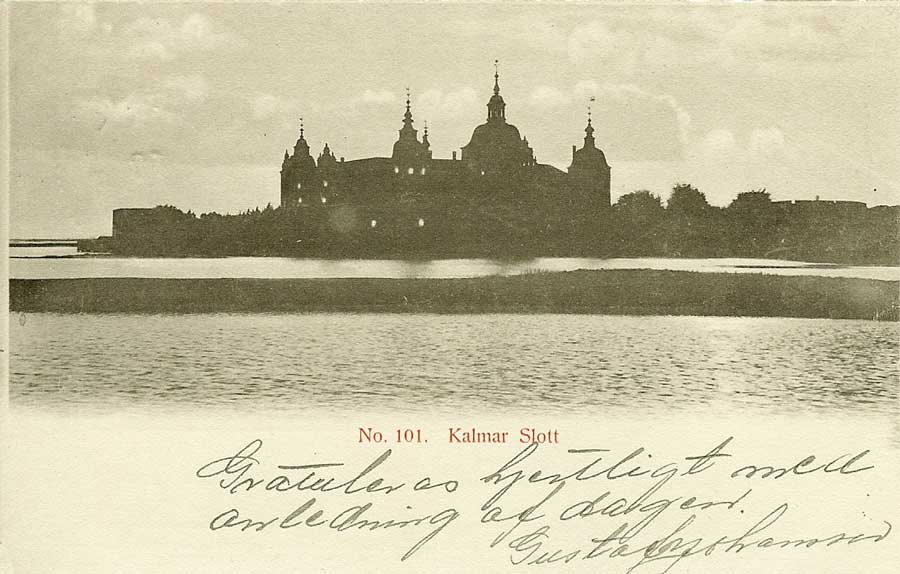 No. 101. Kalmar Slott
Gratuleras hjertligt med
anledning af dagen.
Gustaf Johansson